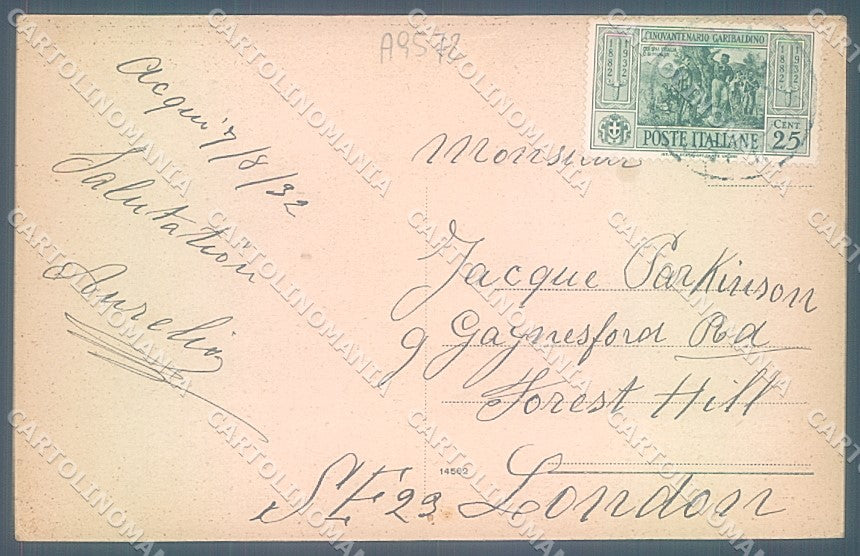 A9572
Acqui 7/8/32
Salutation
Aurelio
CINQVANTENARIO GARIBALDINO
1882
1932
1882
1932
POSTE ITALIANE
CENT
25
Monsieur
Jacque Parkinson
9 Gaynesford Rd
Forest Hill
SE 23 London
14562
CARTOLINOMANIA